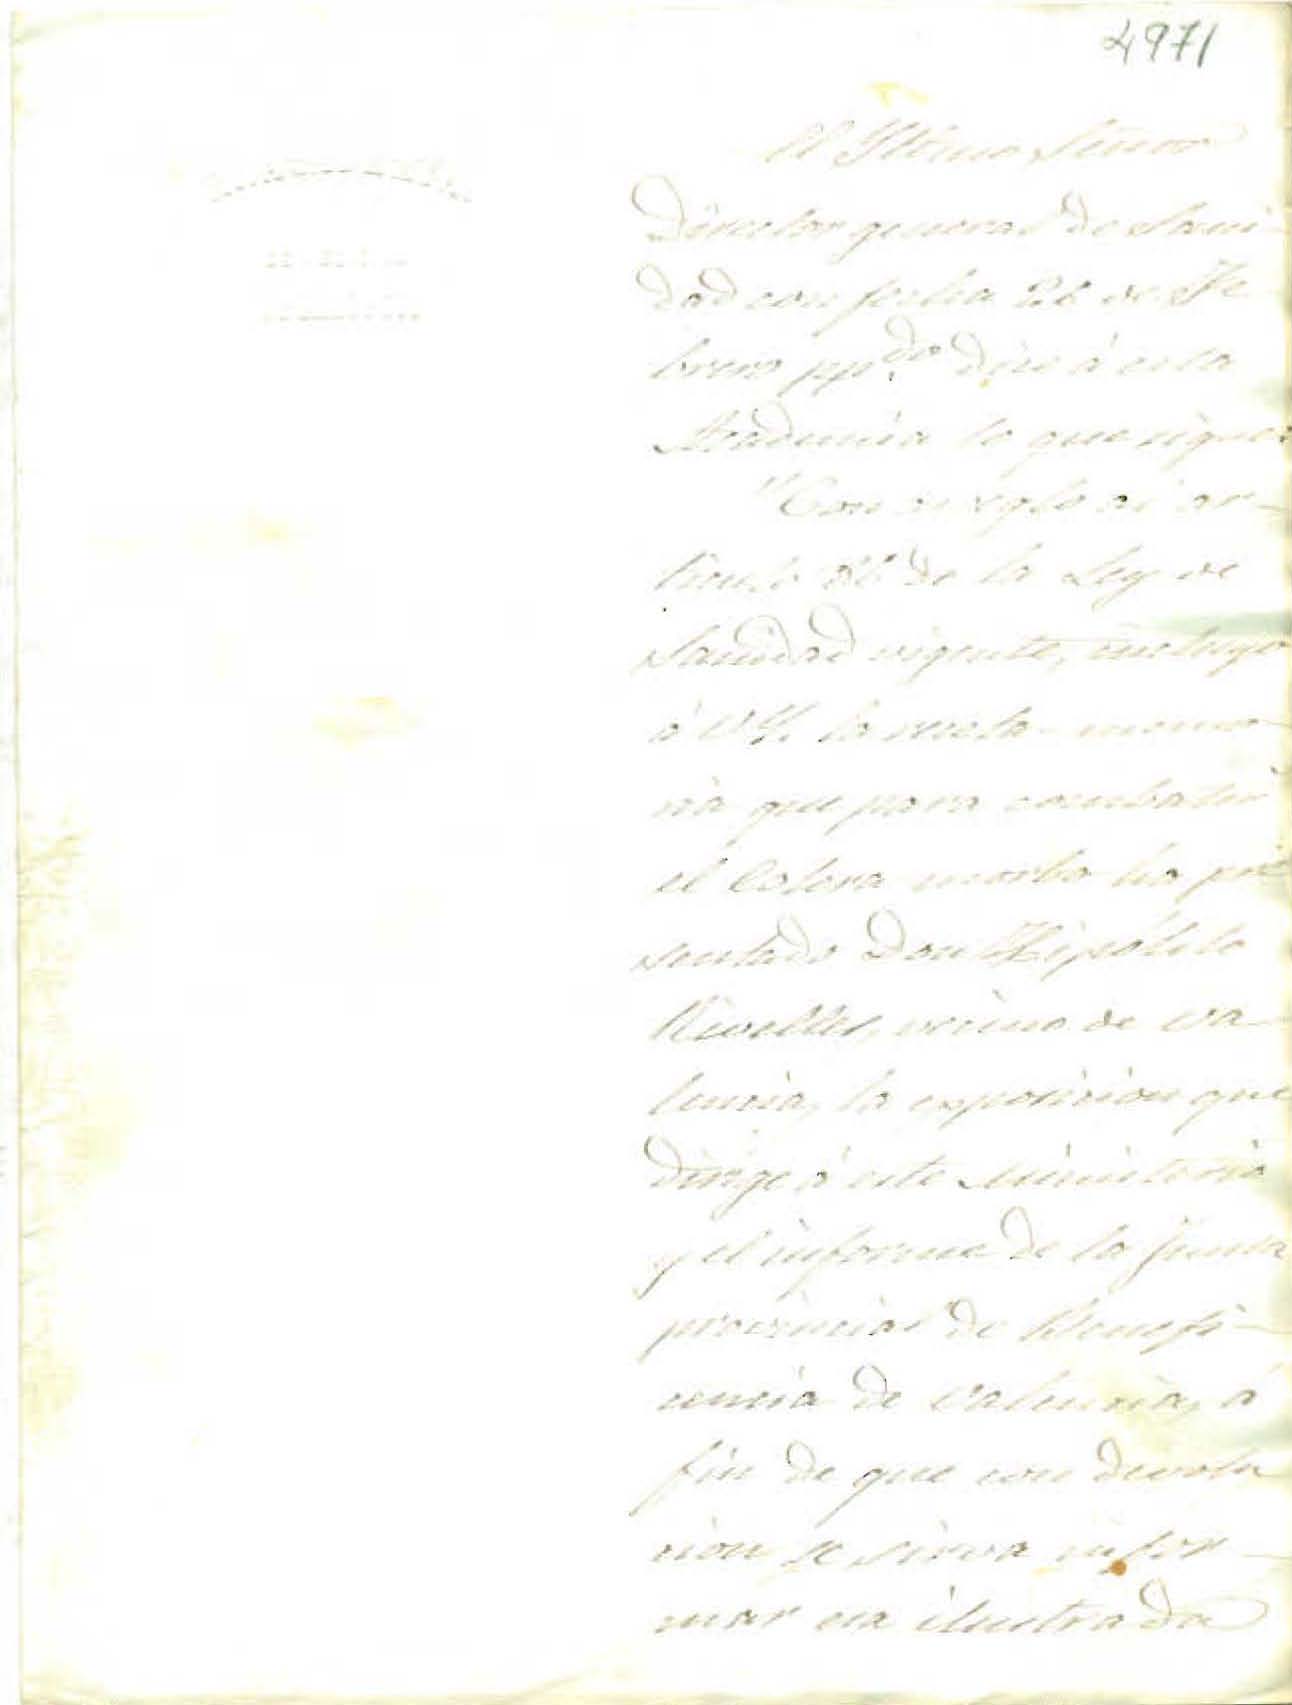 4971
El Iltmo Señor
Director general de Sani-
dad con fecha 26 de Fe-
brero pp.do dice á esta
Academia lo que sigue:
"Con arreglo al ar-
tículo de la Ley de
Sanidad vigente, incluyo
á V.S. la memo-
ria que para combatir
el Colera morbo ha pre
sentado Don Hipólito
Rivelles, vecino de Va-
lencia, la exposicion que
dirige á este Ministerio
y el informe de la Junta
provincial de Benefi-
cencia de Valencia, á
fin de que con devolu
cion se sirva infor-
mar esa ilustrada